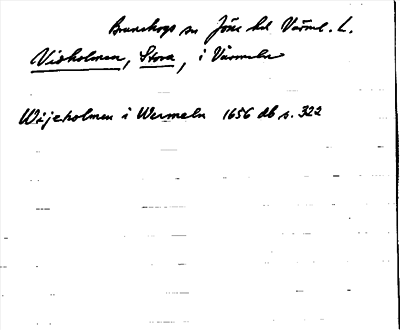 Brunskogs sn Jösse hd Värml. L.
Visholmen, Stora, i Värmeln
Wijsholmen i Wermeln 1656 db s. 322